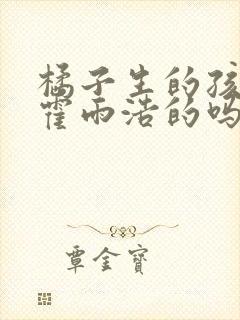 橘子生的孩
霍雨浩的吗
覃金宝